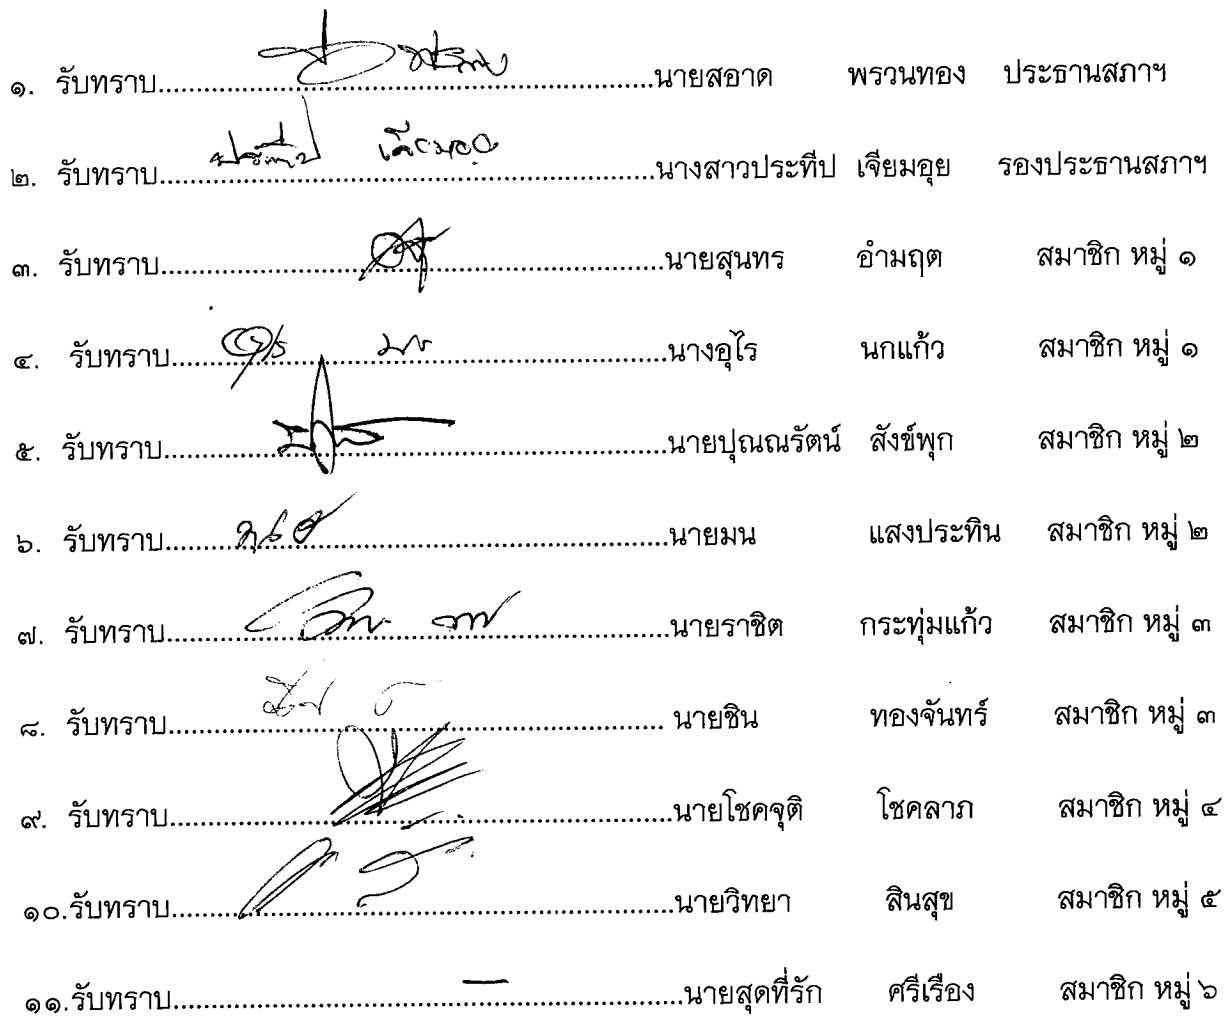 ๑. รับทราบ................................................................นายสอาด พรวนทอง ประธานสภาฯ
๒. รับทราบ................................................................นางสาวประทีป เจียมอุย รองประธานสภาฯ
๓. รับทราบ................................................................นายสุนทร อำมฤต สมาชิก หมู่ ๑
๔. รับทราบ................................................................นางอุไร นกแก้ว สมาชิก หมู่ ๑
๕. รับทราบ................................................................นายปุณณรัตน์ สังข์พุก สมาชิก หมู่ ๒
๖. รับทราบ................................................................นายมน แสงประทิน สมาชิก หมู่ ๒
๗. รับทราบ................................................................นายราชิต กระทุ่มแก้ว สมาชิก หมู่ ๓
๘. รับทราบ................................................................ นายชิน ทองจันทร์ สมาชิก หมู่ ๓
๙. รับทราบ................................................................นายโชคจุติ โชคลาภ สมาชิก หมู่ ๔
๑๐.รับทราบ................................................................นายวิทยา สินสุข สมาชิก หมู่ ๕
๑๑.รับทราบ................................................................นายสุดที่รัก ศรีเรือง สมาชิก หมู่ ๖